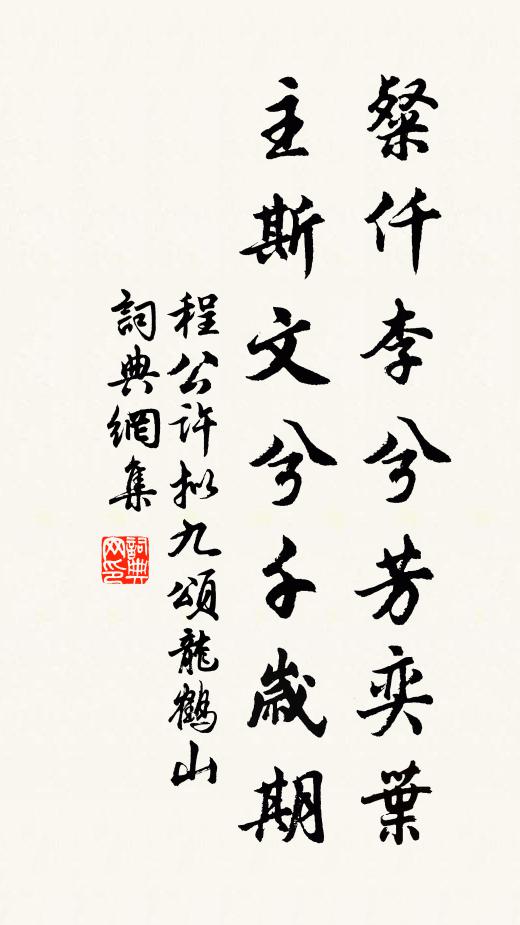 粲仟李兮芳奕葉
主斯文兮千歲期
程公許拟九頌龍鶴山
詞典網集
詞典網印